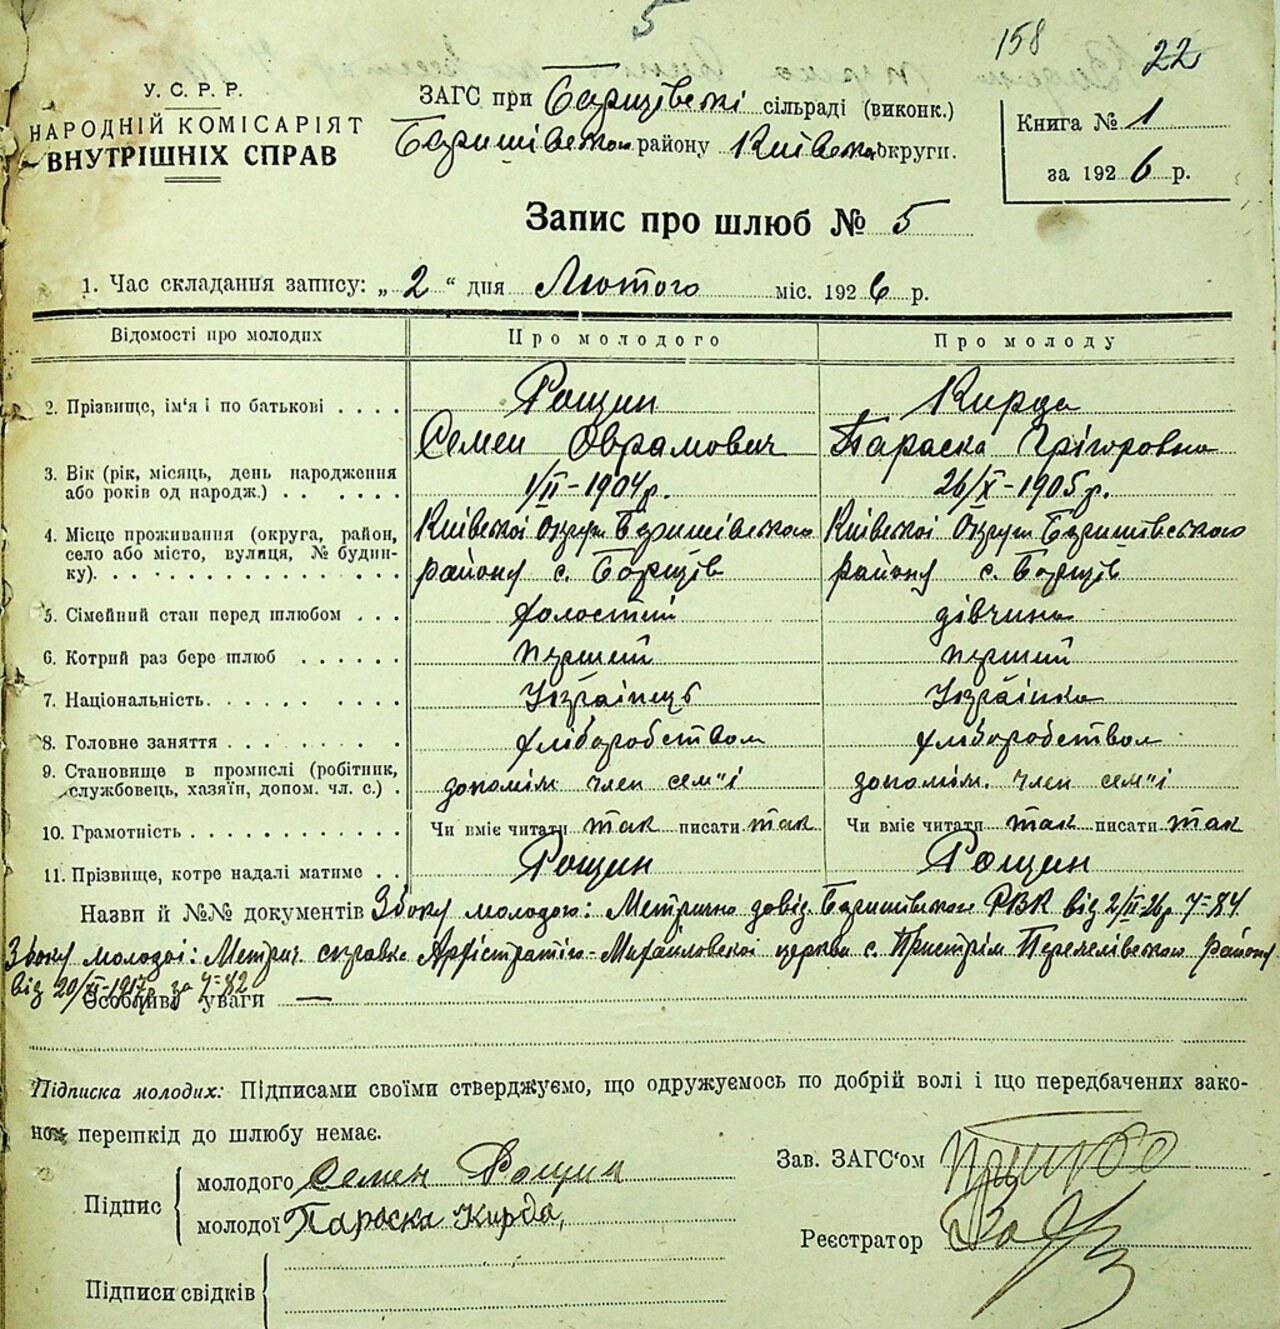 5
158 22
У. С. Р. Р.
НАРОДНІЙ КОМІСАРІЯТ
ВНУТРІШНІХ СПРАВ
ЗАГС при Борщівскі сільраді (виконк.)
Баришівском району Київском округи.
Книга № 1
за 1926 р.
Запис про шлюб № 5
1. Час складання запису: „ 2 “ дня Лютого міс. 1926 р.
Відомості про молодих Про молодого Про молоду
2. Прізвище, ім'я і по батькові . . . . Рощин Кирда
Семен Оврамович Параска Грігоровна
3. Вік (рік, місяць, день народження
або років од народж.) . . . . . . 1/II-1904р. 26/X-1905р.
4. Місце проживання (округа, район, Київської Округи Баришівського Київської Округи Баришівського
село або місто, вулиця, № будин-
ку). . . . . . . . . . . . . . району с. Борщів району с. Борщів
5. Сімейний стан перед шлюбом . . . холостий дівчина
6. Котрий раз бере шлюб . . . . . . перший перший
7. Національність. . . . . . . . . . Українець Українка
8. Головне заняття . . . . . . . . хліборобством хліборобством
9. Становище в промислі (робітник,
службовець, хазяїн, допом. чл. с.) . допоміж член сем"ї допоміж. член сем"ї
10. Грамотність . . . . . . . . . . . Чи вміє читати так писати так Чи вміє читати так писати так
11. Прізвище, котре надалі матиме . . Рощин Рощин
Назви й №№ документів Збоку молодого: Метрична довід. Баришівськог РВК від 2/II-26р. Ч=84
Збоку молодої: Метрич. справка Архістратіго-Михайловскої церкви с. Пристрім Переяслівського району
від 20/ -1917р. за Ч=82
Особливі уваги —
Підписка молодих: Підписами своїми стверджуємо, що одружуємось по добрій волі і що передбачених зако-
ном перешкід до шлюбу немає.
Підпис
молодого Семен Рощин
молодої Параска Кирда,
Зав. ЗАГС'ом
Реєстратор
Підписи свідків